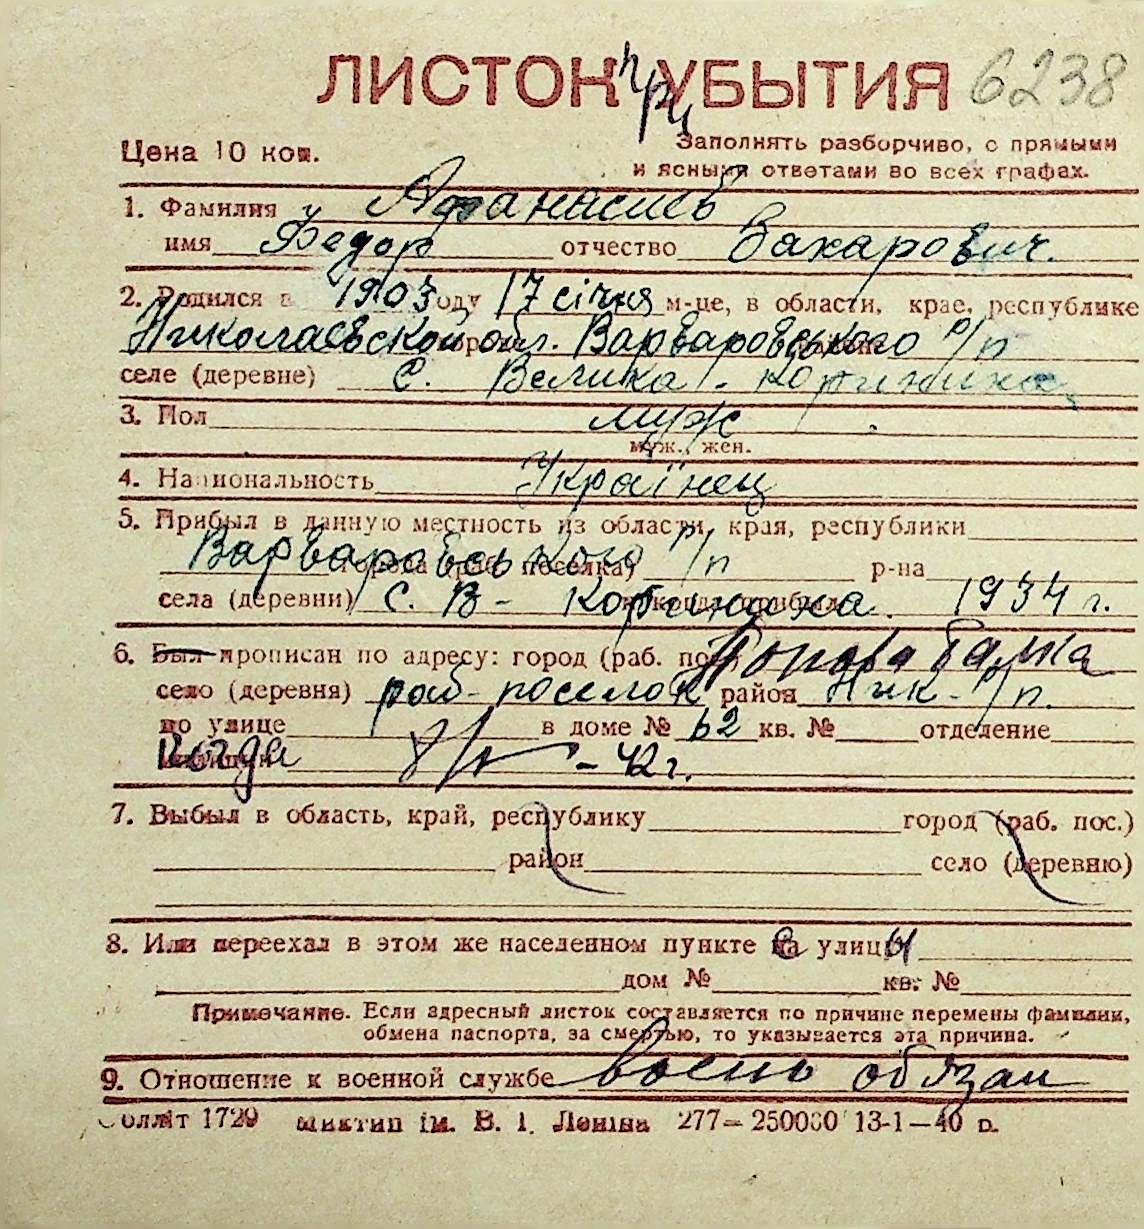 ЛИСТОК при УБЫТИЯ 6238
Цена 10 коп.
Заполнять разборчиво, с прямыми
и ясными ответами во всех графах.
1. Фамилия Афанасиев
имя Федор отчество Захарович.
2. Родился в 1903 году 17 січня м-це, в области, крае, республике
Николаевской обл. Варваровського р/п
селе (деревне) с. Велика-Корениха
3. Пол муж
муж., жен.
4. Национальность Українец
5. Прибыл в данную местность из области, края, республики
Варваровського р/п р-на
села (деревни) с. В-Корениха. 1934 г.
6. Был прописан по адресу: город (раб. пос.) Попова балка
село (деревня) раб-поселок район Ник-р/п.
по улице в доме № 62 кв. № отделение
Когда -42г.
7. Выбыл в область, край, республику город (раб. пос.)
район село (деревню)
8. Или переехал в этом же населенном пункте с улицы
дом № кв. №
Примечание. Если адресный листок составляется по причине перемены фамилии,
обмена паспорта, за смертью, то указывается эта причина.
9. Отношение к военной службе воень обязан
Обллит 1729 Миктип ім. В. І. Леніна 277—250000 13-1—40 р.